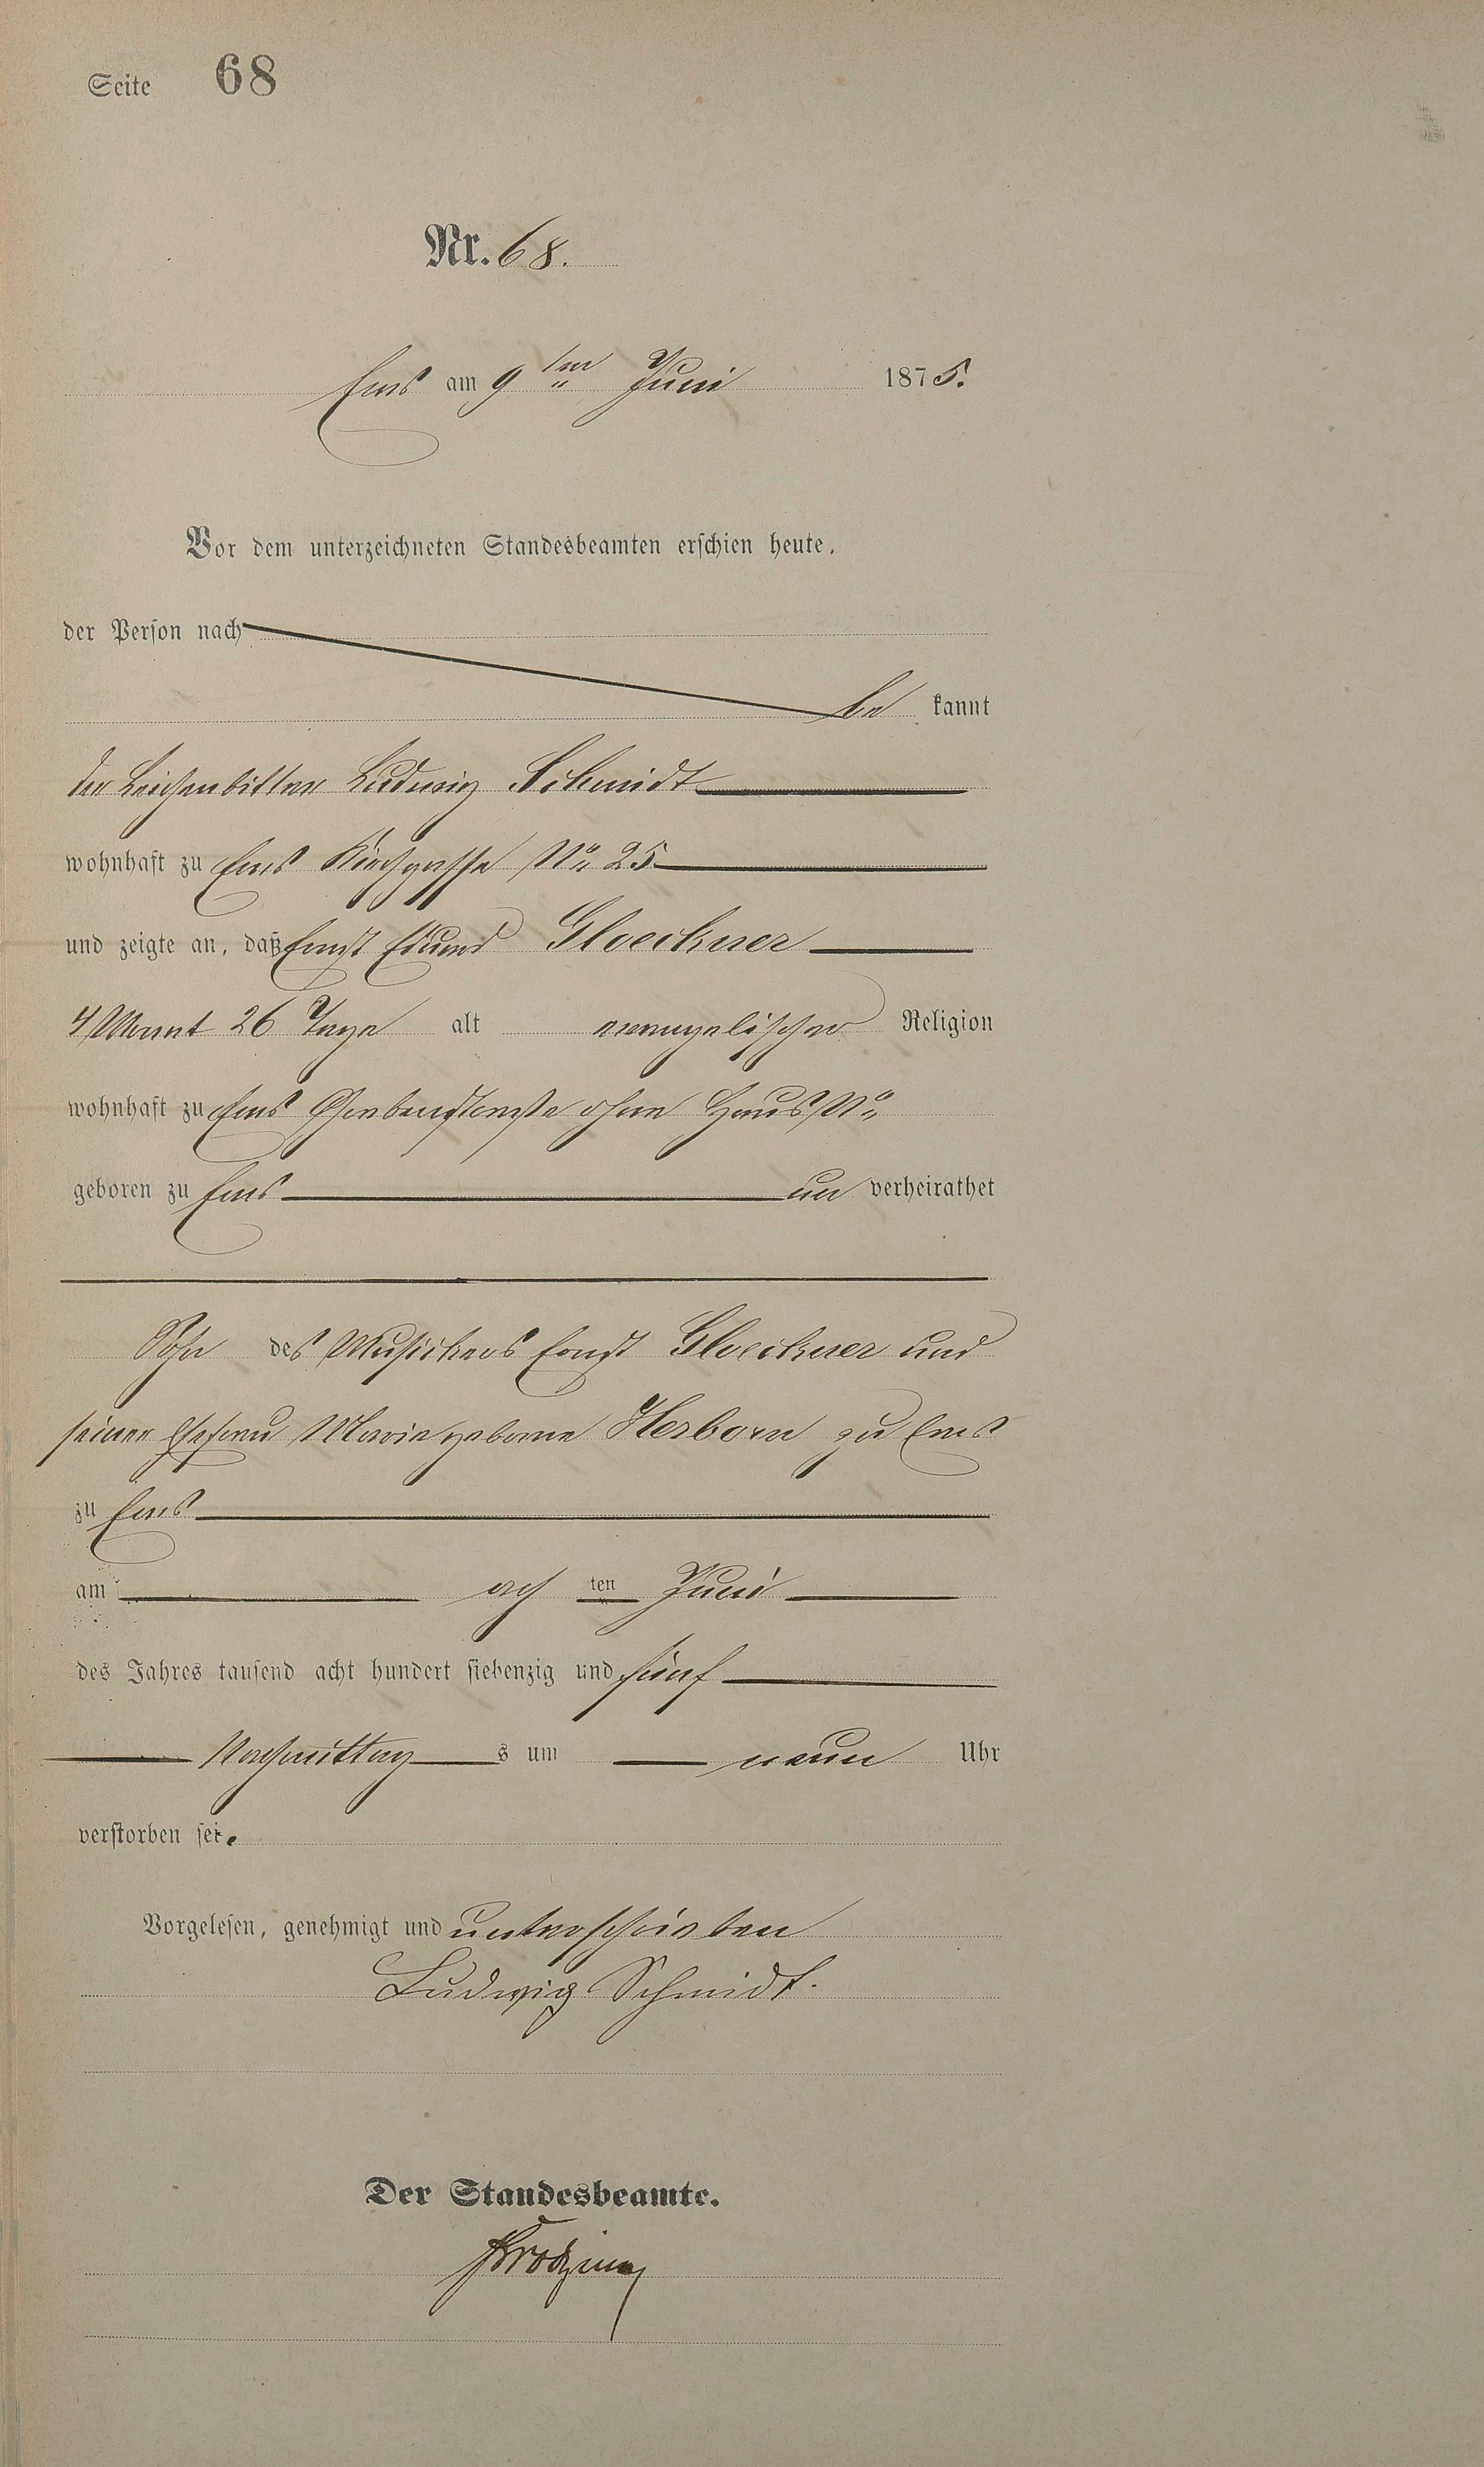 Seite 68
Nr. 68.
Ems am 9ten Juni 1875.
Vor dem unterzeichneten Standesbeamten erschien heute,
der Person nach
be kannt
der Leichenbitter Ludwig Schmidt
wohnhaft zu Ems Kirchgasse No 25
und zeigte an, daß Ernst Eduard Gloeckner
4 Monat 26 Tage alt evangelischer Religion
wohnhaft zu Ems Grabenstraße ohne Haus No
geboren zu Ems un verheirathet
Sohn des Musickers Ernst Gloeckner und
seiner Ehefrau Marie geborne Herborn zu Ems
zu Ems
am ach ten Juni
des Jahres tausend acht hundert siebenzig und fünf
Nachmittag s um neun Uhr
verstorben sei.
Vorgelesen, genehmigt und unterschrieben
Ludwig Schmidt.
Der Standesbeamte.